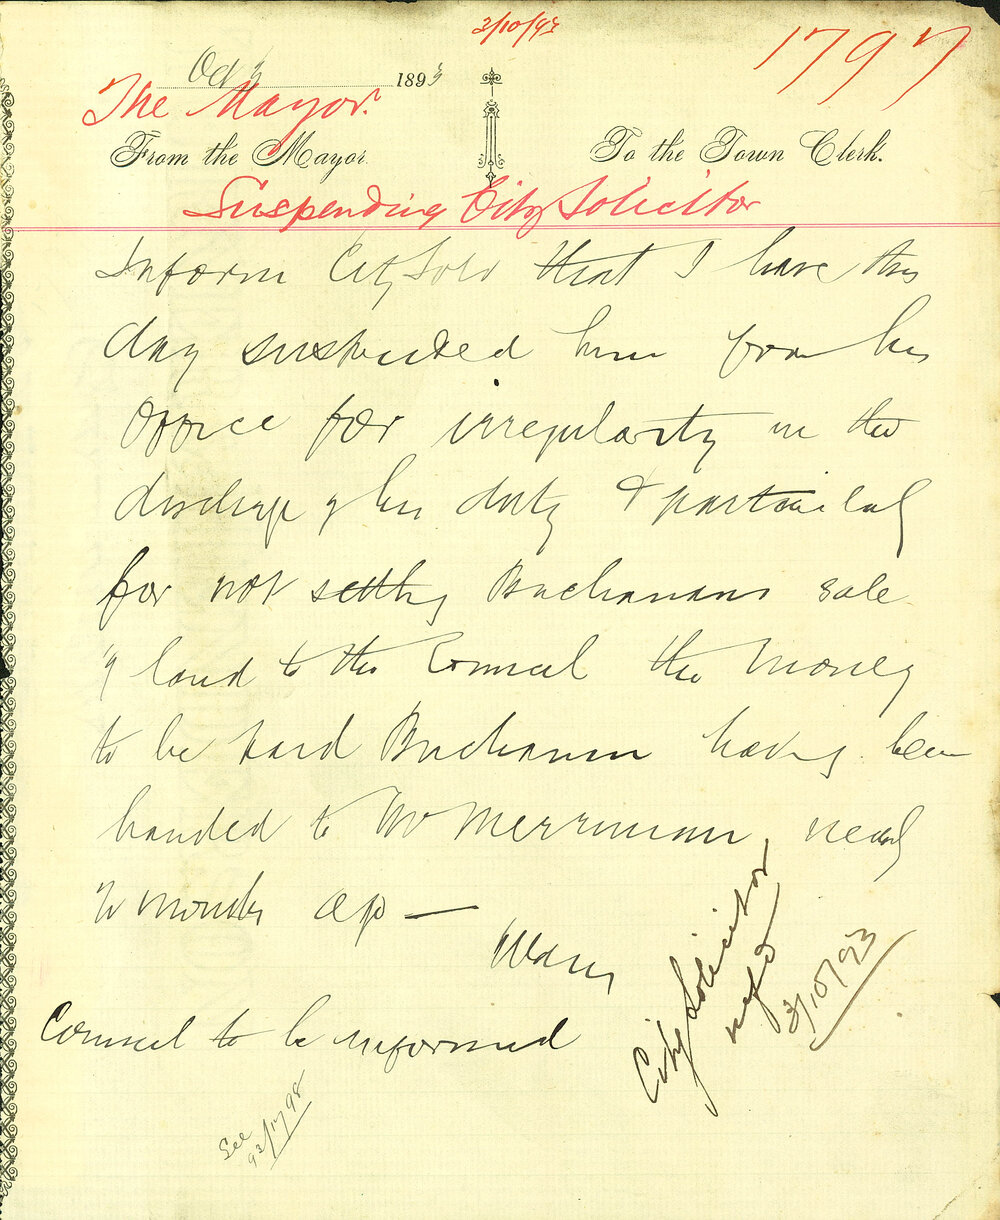 3/10/93
1797
Oct 3 1893
The Mayor.
From the Mayor To the Town Clerk.
Suspending City Solicitor
Inform City Solr that I have this
day suspended him from his
Office for irregularity in the
discharge of his duty &
for not settling Buchanans sale
of land to the Council the money
to be paid Buchanan having been
handed to Mr Merriman nearly
months ago —
Council to be informed
City Solicitor
infd
3/10/93
See
93/1798